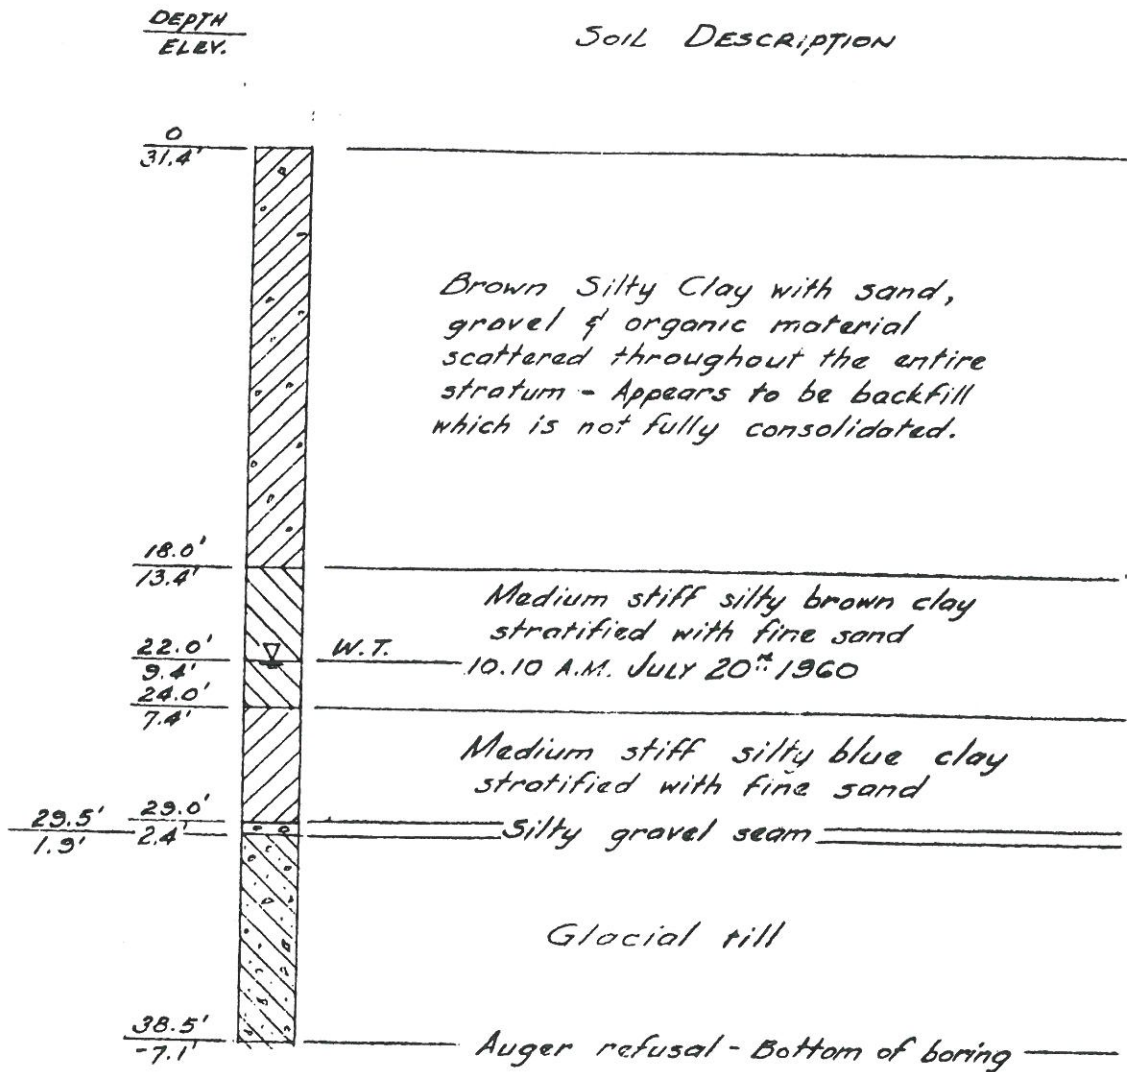 DEPTH
ELEV.
SOIL DESCRIPTION
0
31.4'
Brown Silty Clay with sand,
gravel & organic material
scattered throughout the entire
stratum - Appears to be backfill
which is not fully consolidated.
18.0'
13.4'
Medium stiff silty brown clay
stratified with fine sand
22.0'
9.4'
W.T.
10.10 A.M. JULY 20th 1960
24.0'
7.4'
Medium stiff silty blue clay
stratified with fine sand
29.5'
1.9'
29.0'
2.4'
Silty gravel seam
Glacial till
38.5'
-7.1'
Auger refusal - Bottom of boring